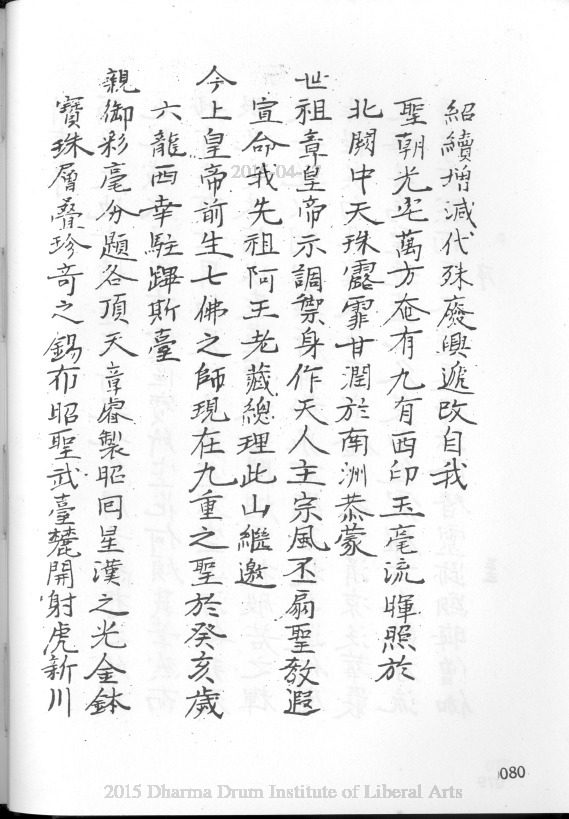 紹續增減代殊廢興遞改自我
聖朝光宅萬方奄有九有西印玉毫流暉照於
北闕中天珠露霏甘潤於南洲恭蒙
世祖章皇帝示調禦身作天人主宗風丕扇聖教遐
宣命我先祖阿王老藏總理此山繼邀
今上皇帝前生七佛之師現在九重之聖於癸亥歲
六龍西幸駐蹕斯臺
親御彩毫分題各頂天章睿製昭回星漢之光金鉢
寶珠層疊珍奇之錫布昭聖武臺麓開射虎新川
080
2015 Dharma Drum Institute of Liberal Arts